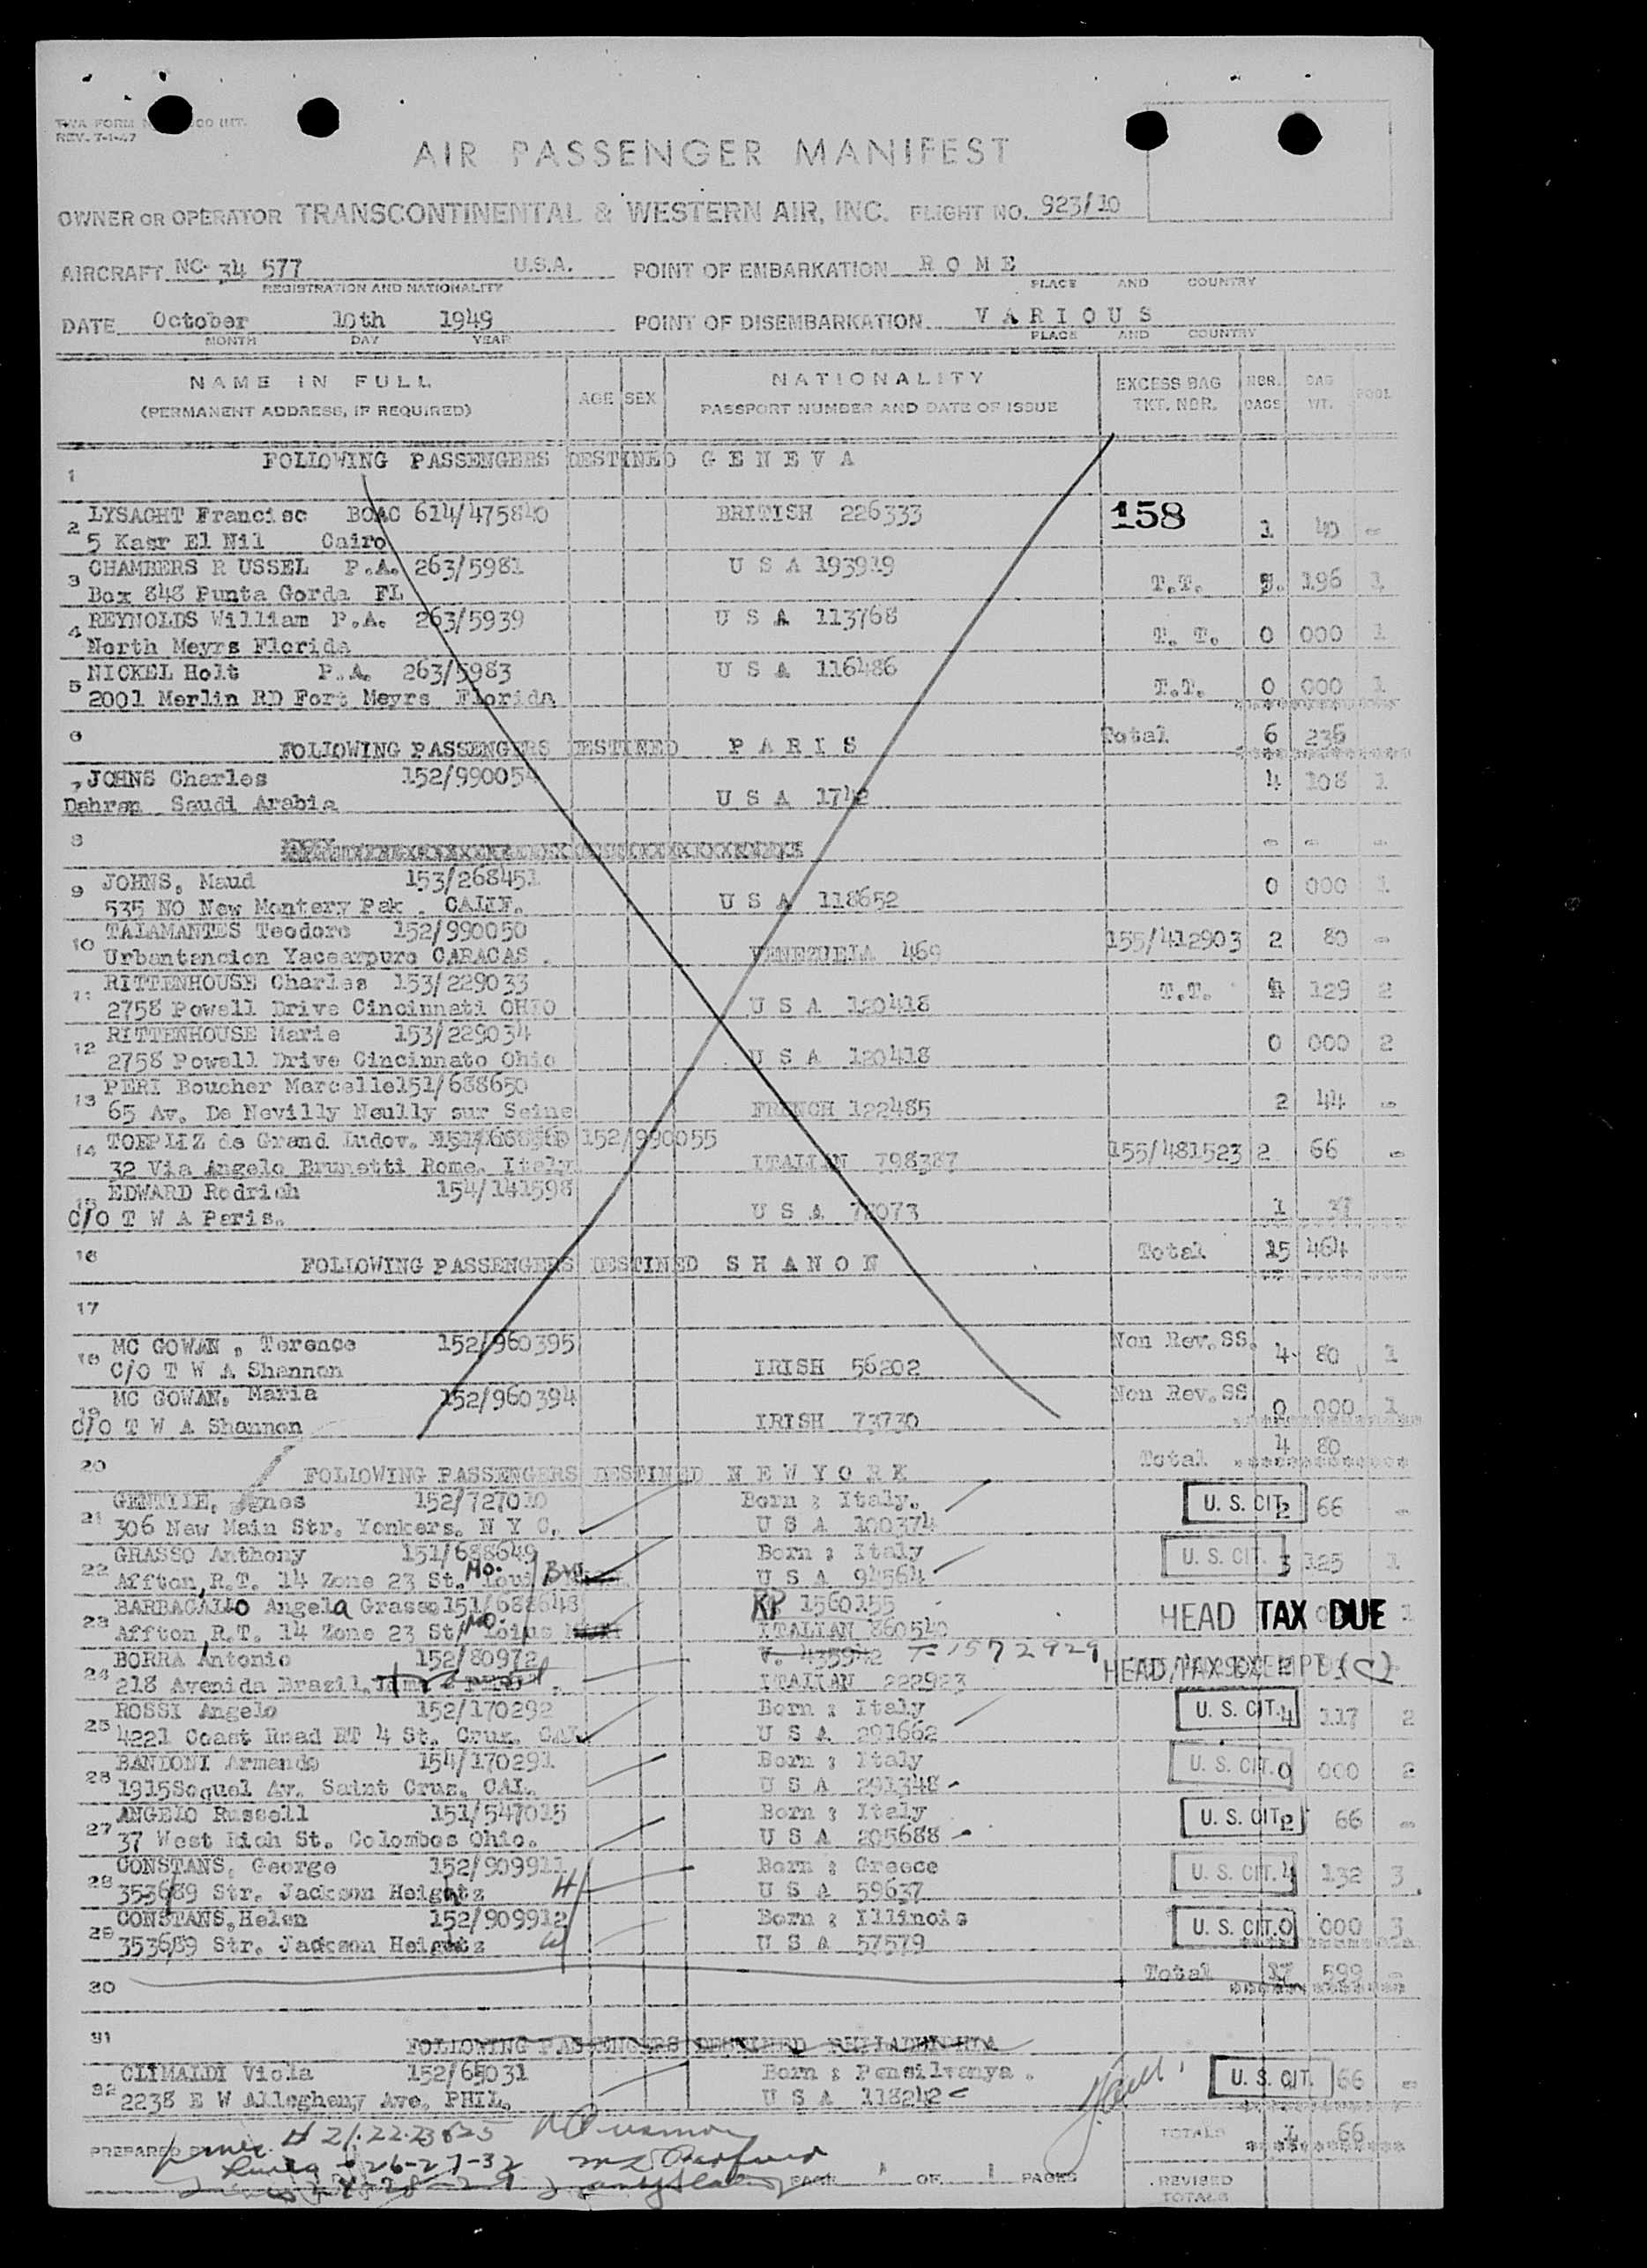 REV. 7-1-47
AIR PASSENGER MANIFEST
OWNER OR OPERATOR TRANSCONTINENTAL & WESTERN AIR, INC. FLIGHT NO. 923/10
AIRCRAFT NC- 34 577 U.S.A. POINT OF EMBARKATION R O M E
REGISTRATION AND NATIONALITY PLACE AND COUNTRY
DATE October 10th 1949 POINT OF DISEMBARKATION V A R I O U S
MONTH DAY YEAR PLACE AND COUNTRY
NAME IN FULL AGE SEX NATIONALITY EXCESS BAG NBR. BAG POOL
(PERMANENT ADDRESS, IF REQUIRED) PASSPORT NUMBER AND DATE OF ISSUE TKT. NBR. BAGS WT.
1 FOLLOWING PASSENGERS DESTINED G E N E V A
2 LYSAGHT Francisc BOAC 614/475840 BRITISH 226333 158 1 40 -
5 Kasr El Nil Cairo
3 CHAMBERS R USSEL P.A. 263/5981 U S A 193919 T.T. 196 1
Box 848 Punta Gorda FL
4 REYNOLDS William P.A. 263/5939 U S A 113768 T. T. 0 000 1
North Meyrs Florida
5 NICKEL Holt P.A. 263/5983 U S A 116486 T.T. 0 000 1
2001 Merlin RD Fort Meyrs Florida
6 FOLLOWING PASSENGERS DESTINED P A R I S Total 6 236
7 JOHNS Charles 152/990054 4 108 1
Dahran Saudi Arabia U S A 1742
8 - - -
9 JOHNS, Maud 153/268451 0 000 1
535 NO New Montery Pak . CALIF. U S A 118652
10 TALAMANTES Teodoro 152/990050 155/412903 2 80 -
Urbantancion Yacearpuro CARACAS . VENEZUELA 469
11 RITTENHOUSE Charles 153/229033 T.T. 4 129 2
2758 Powell Drive Cincinnati OHIO U S A 120418
12 RITTENHOUSE Marie 153/229034 0 000 2
2758 Powell Drive Cincinnato Ohio U S A 120418
13 PERI Boucher Marcelle151/688650 2 44 -
65 Av. De Nevilly Neully sur Seine FRENCH 122485
14 TOEPLIZ de Grand Ludov. 152/990055 155/481523 2 66 -
32 Via Angelo Brunetti Rome. Italy ITALIAN 798387
15 EDWARD Rodrich 154/141598
C/O T W A Paris. U S A 72073 1 37
16 FOLLOWING PASSENGERS DESTINED S H A N O N Total 15 464
17
18 MC GOWAN , Terence 152/960395 Non Rev.SS. 4 80 1
C/O T W A Shannon IRISH 56202
19 MC GOWAN, Maria 152/960394 Non Rev.SS 0 000 1
C/O T W A Shannon IRISH 73730
Total 4 80
20 FOLLOWING PASSENGERS DESTINED N E W Y O R K
21 GENTILE, Agnes 152/727010 Born : Italy. U. S. CIT. 2 66 -
306 New Main Str. Yonkers. N Y C. U S A 100374
22 GRASSO Anthony 151/688649 Born : Italy U. S. CIT. 3 125 1
Affton, R.T. 14 Zone 23 St. Mo. U S A 94564
23 BARBAGALLO Angela Grasso151/688648 RP 1560155 HEAD TAX DUE 1
Affton, R.T. 14 Zone 23 St. Mo. ITALIAN 860540
24 BORRA Antonio 152/80972 V. 435942 1572929 HEAD TAX EXEMPT (C)
218 Avenida Brazil. ITALIAN 222923
25 ROSSI Angelo 152/170292 Born : Italy U. S. CIT. 4 117 2
4221 Coast Road RT 4 St. Cruz. CAL U S A 291662
26 BANDONI Armando 154/170291 Born : Italy U. S. CIT. 0 000 2
1915Soquel Av. Saint Cruz. CAL. U S A 291348
27 ANGELO Russell 151/547015 Born : Italy U. S. CIT. 2 66 -
37 West Rich St. Colombos Ohio. U S A 205688
28 CONSTANS, George 152/909911 Born : Greece U. S. CIT. 4 132 3
353689 Str. Jackson Heightz H U S A 59637
29 CONSTANS,Helen 152/909912 Born : Illinois U. S. CIT. 0 000 3
353689 Str. Jackson Heightz W U S A 57579
30 Total 17 599 -
31 FOLLOWING PASSENGERS DESTINED PHILADELPHIA
32 CLIMALDI Viola 152/65031 Born : Pensilvanya . U. S. CIT. 66 -
2238 E W Allegheny Ave. PHIL. U S A 118242
PREPARED 21-22-23&25 TOTALS 66
26-27-32
PAGE 1 OF 1 PAGES REVISED
TOTALS